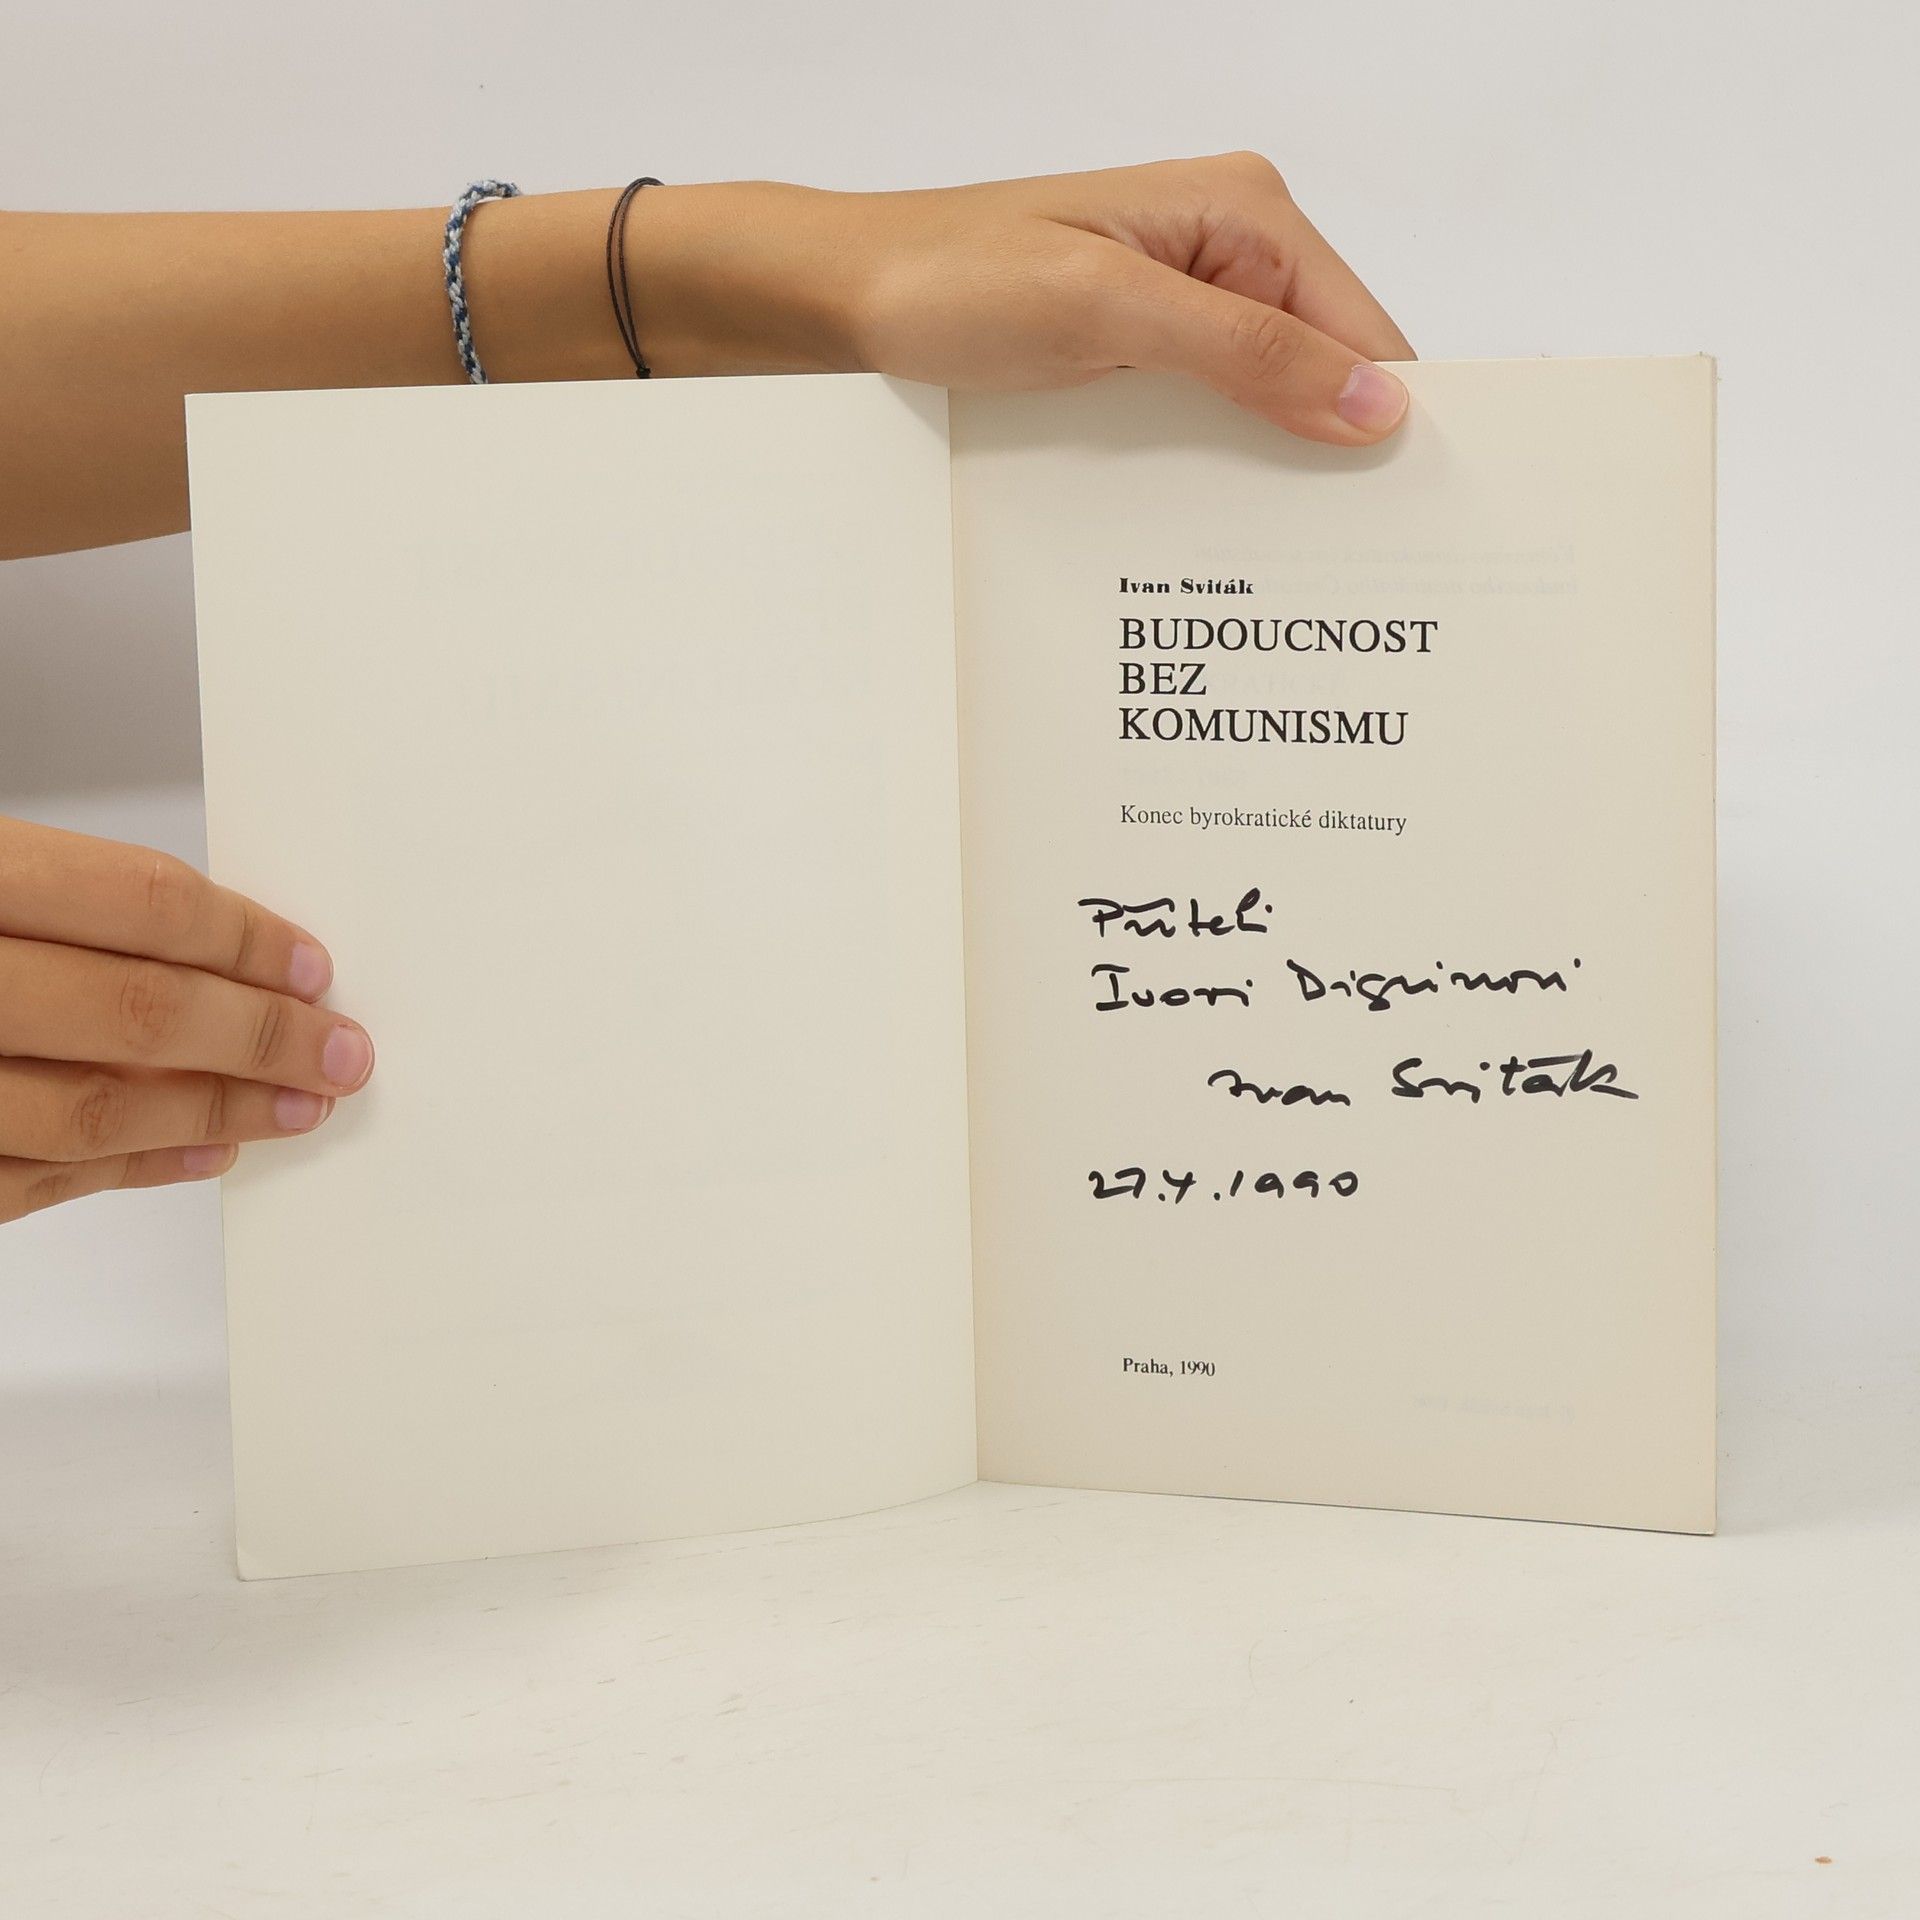 Ivan Sviták
BUDOUCNOST
BEZ
KOMUNISMU
Konec byrokratické diktatury
Příteli
Ivan Sviták
27.4.1990
Praha, 1990